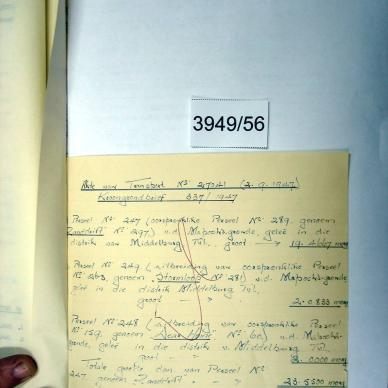 3949/56
Akte van Transport No. (2.9.1947)
Kroongrondbrief 337/1947
Perseel No. 247 (oorspronklike Perseel No. 289 genoem
No. 297) v.d. Mapochsgronde, geleë in die
distrik van Middelburg Tvl., groot — 19.4667 morg
Perseel No. 249 (uitbreiding van oorspronklike Perseel
No. 263, genoem No. 281) v.d. Mapochsgronde
geleë in die distrik Middelburg Tvl.
groot — 2.0833 morg
Perseel No. 248 (uitbreiding van oorspronklike Perseel
No. 159, genoem No. v.d. Mapochs-
gronde, geleë in die distrik v. Middelburg Tvl.
groot — .0000 morg
Totale grootte dan van Perseel No.
247 genoem 23.5500 morg